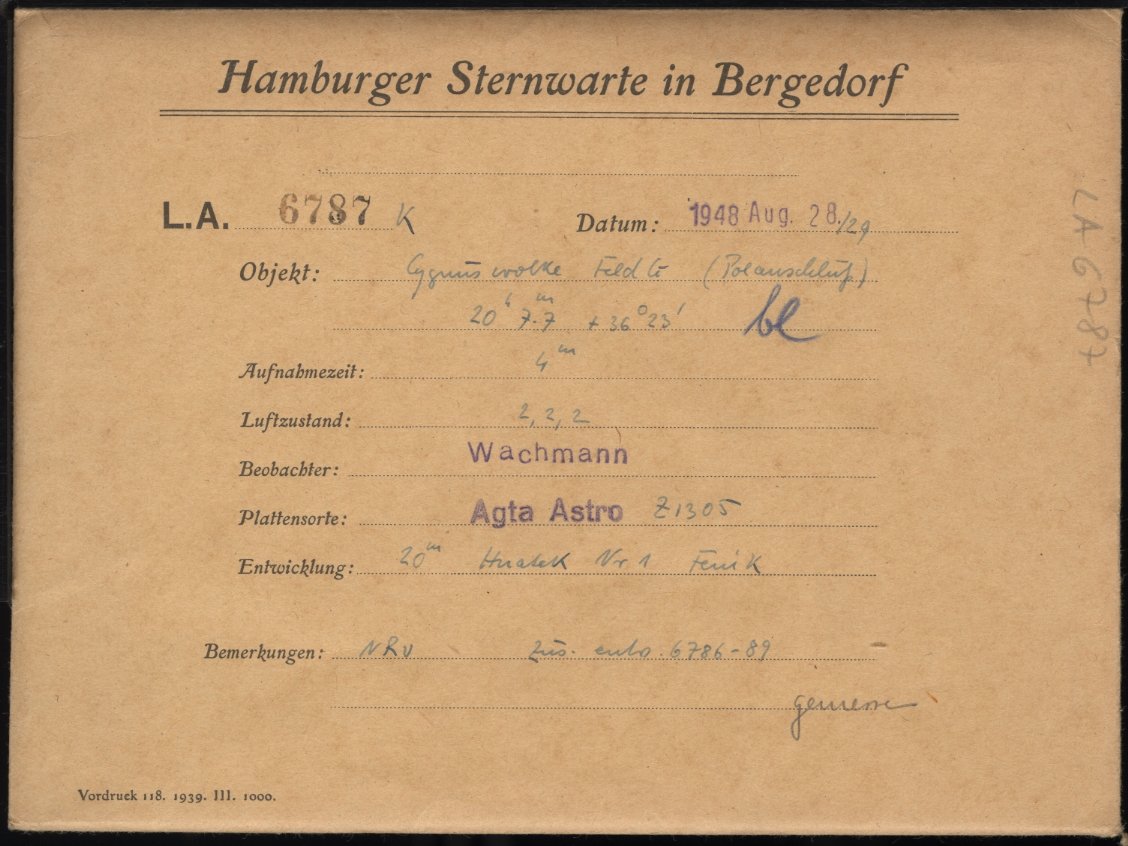 Hamburger Sternwarte in Bergedorf
L.A. 6787 K
Datum: 1948 Aug. 28./29
Objekt: Cygnuswolke Feld (Polanschluß)
20h 7m.7 + 36° 23'
bl
Aufnahmezeit: 4m
Luftzustand: 2, 2, 2
Beobachter: Wachmann
Plattensorte: Agfa Astro Z1305
Entwicklung: 20m Hnatek Nr 1
Bemerkungen: Zus. entw. 6786-89
gemessen
Vordruck 118. 1939. III. 1000.
LA 6787